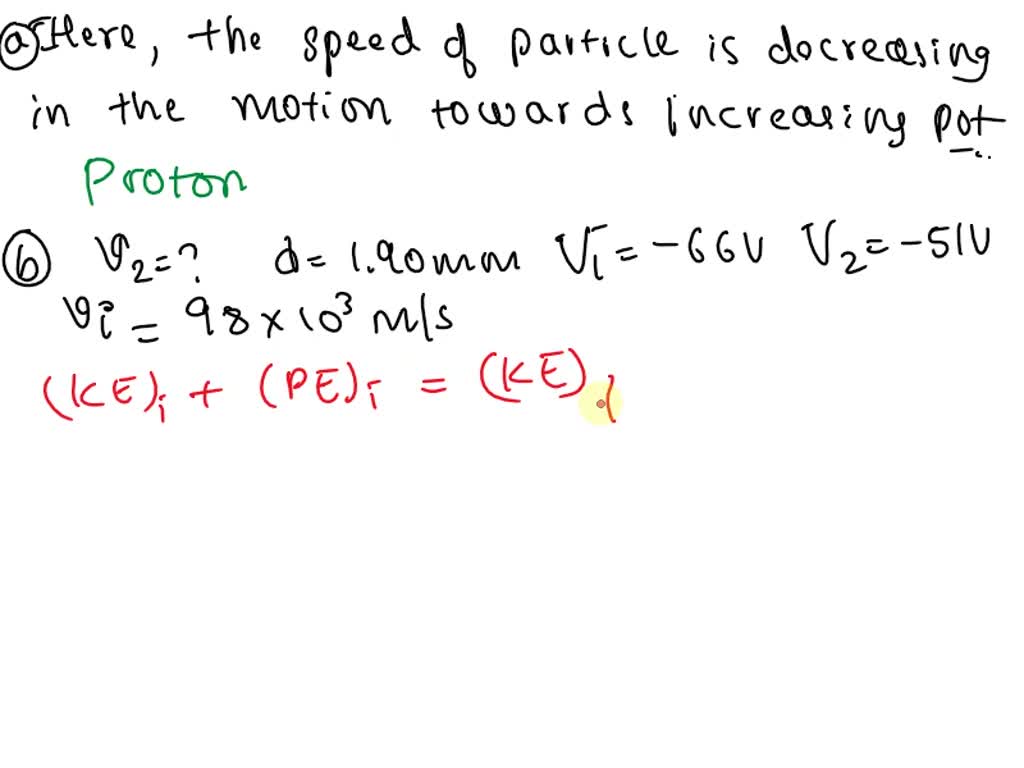 (a) Here, the speed of particle is decreasing
in the motion towards increasing pot
Proton
(b) v₂=? d= 1.90mm V₁ = -66V V₂ = -51V
vi = 98 × 10³ m/s
(KE)i + (PE)i = (KE)